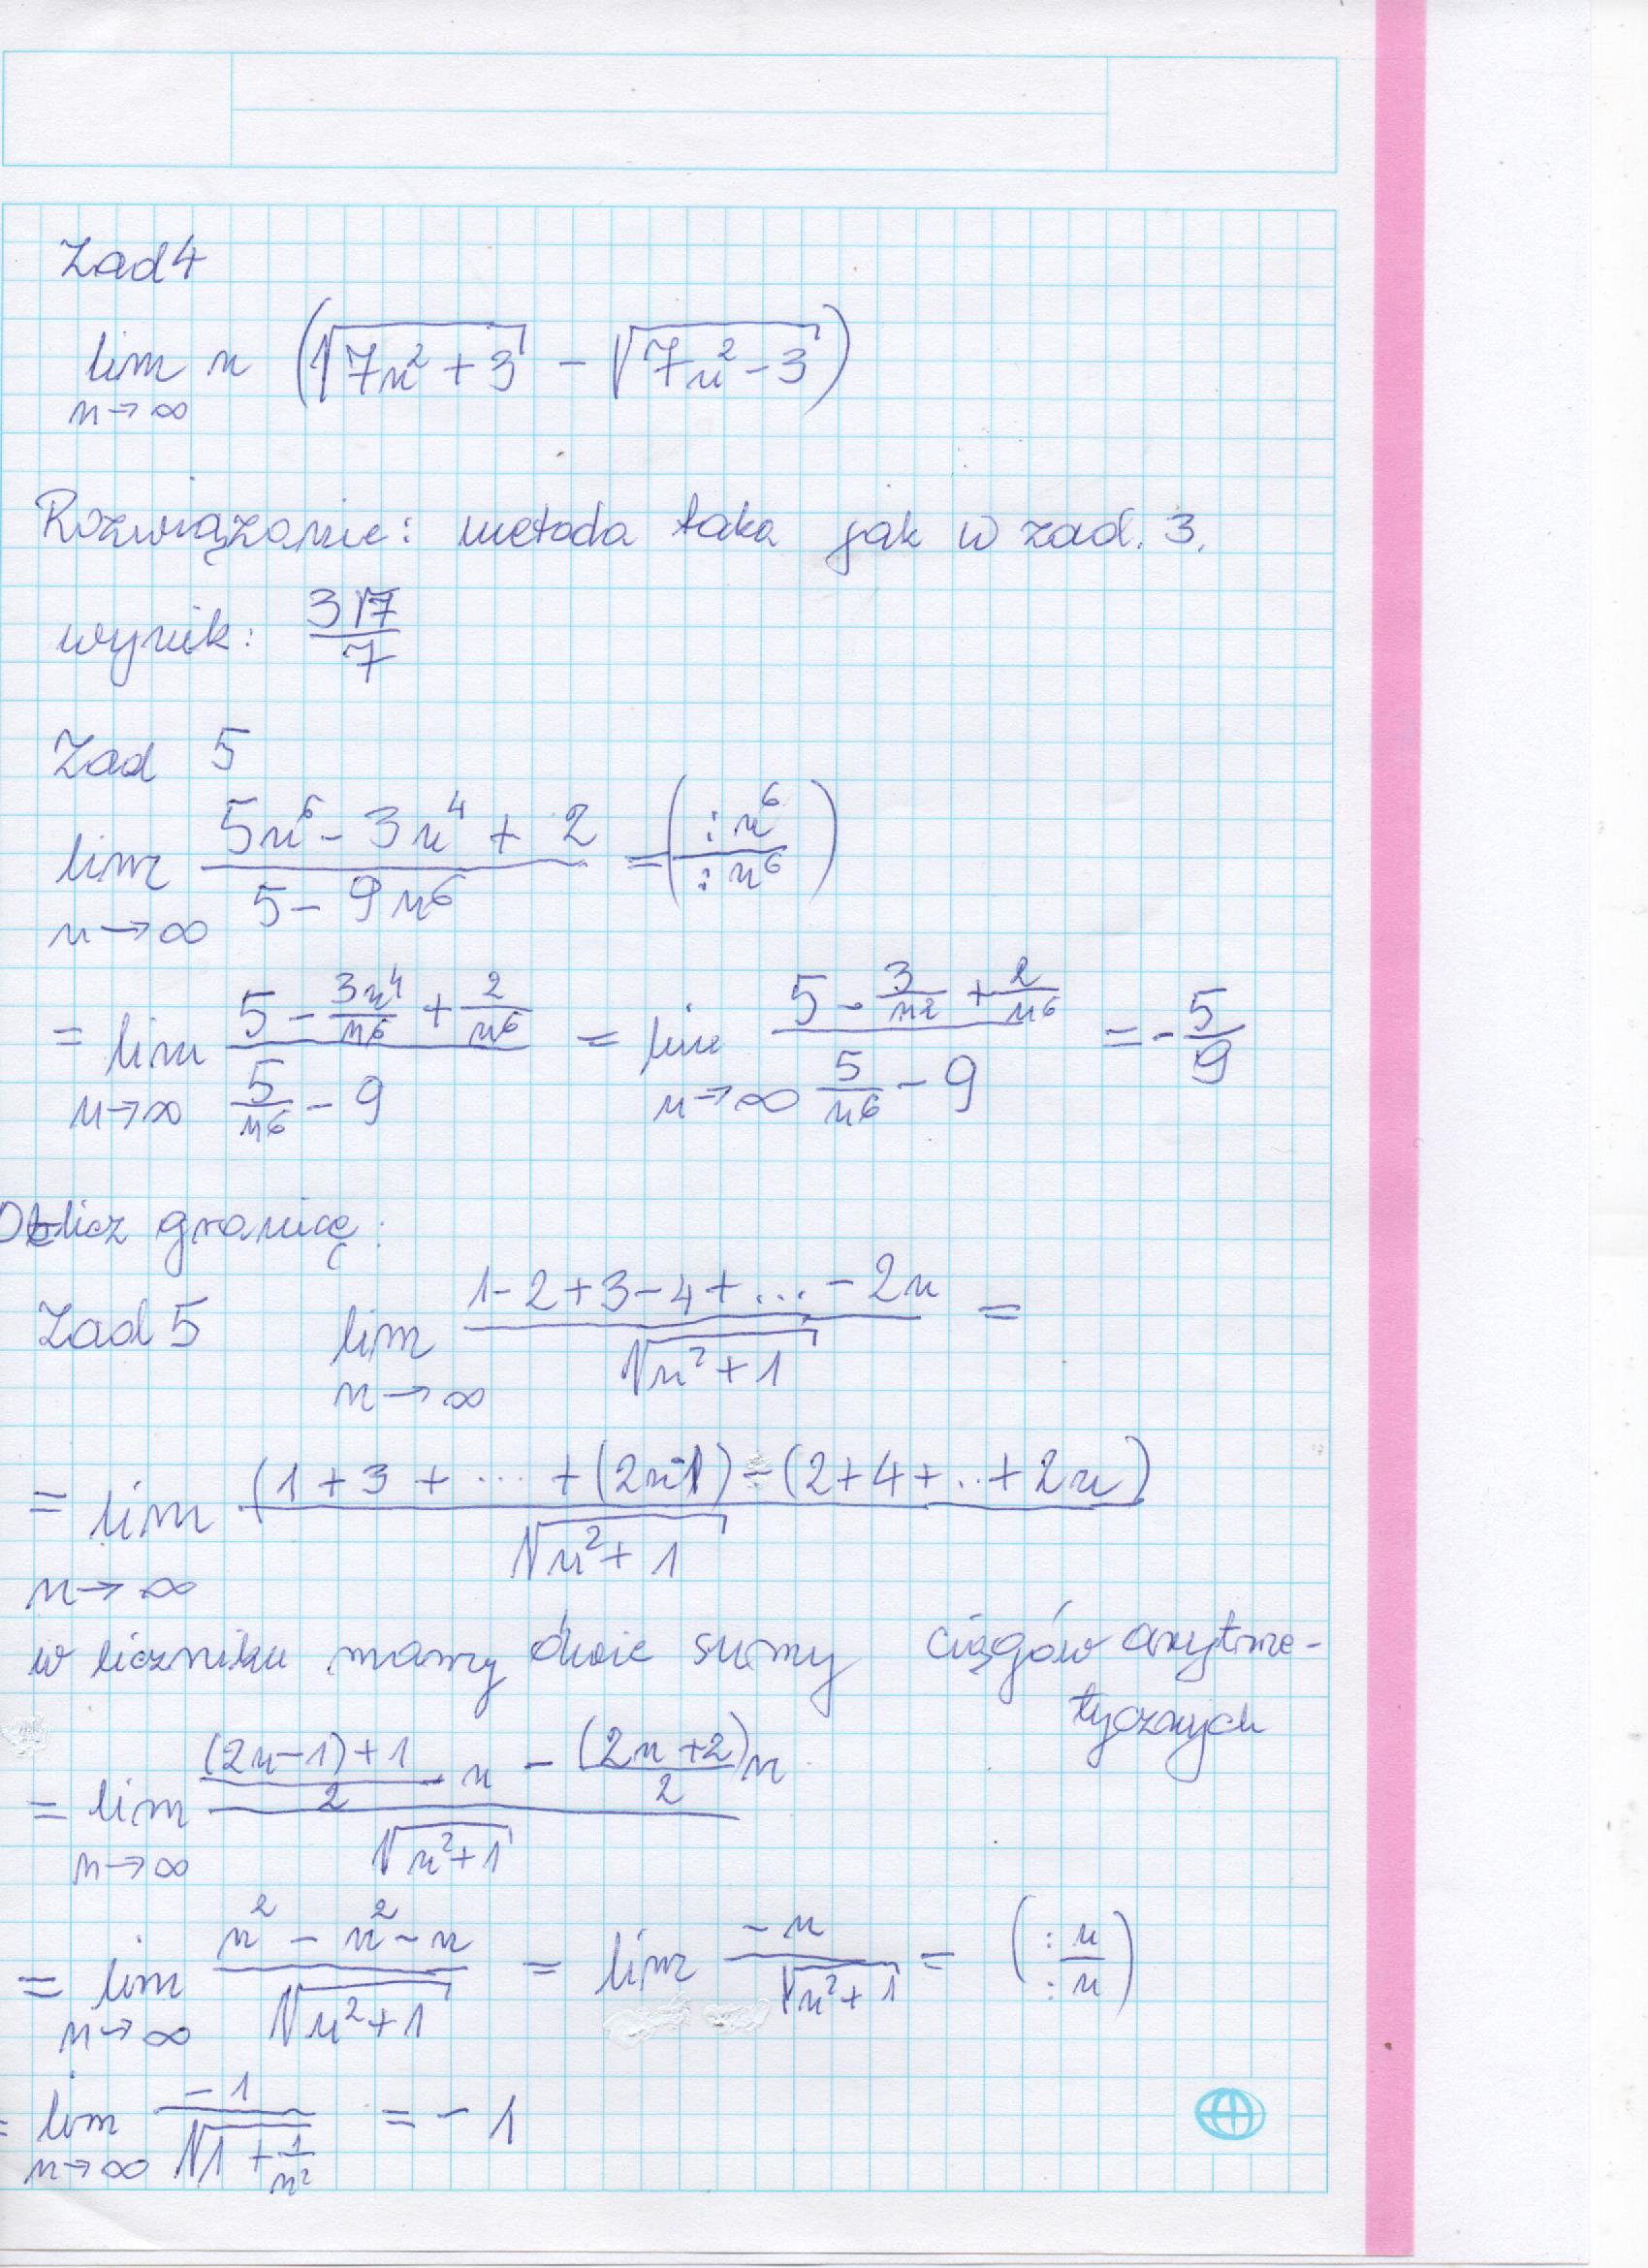 Zad 4
lim n→∞ n (√(7n² + 3) - √(7n² - 3))
Rozwiązanie: metoda taka jak w zad. 3.
wynik: 3√7/7
Zad 5
lim n→∞ (5n⁶ - 3n⁴ + 2)/(5 - 9n⁶) = (:n⁶/:n⁶)
= lim n→∞ (5 - 3n⁴/n⁶ + 2/n⁶)/(5/n⁶ - 9) = lim n→∞ (5 - 3/n² + 2/n⁶)/(5/n⁶ - 9) = -5/9
Oblicz granicę:
Zad 5 lim n→∞ (1-2+3-4+...-2n)/√(n²+1) =
= lim n→∞ ((1+3+...+(2n-1)-(2+4+..+2n))/√(n²+1)
w liczniku mamy dwie sumy ciągów arytme-
tycznych
= lim n→∞ (((2n-1)+1)/2 · n - (2n+2)/2 n)/√(n²+1)
= lim n→∞ (n² - n² - n)/√(n²+1) = lim -n/√(n²+1) = (:n/:n)
= lim n→∞ -1/√(1 + 1/n²) = -1